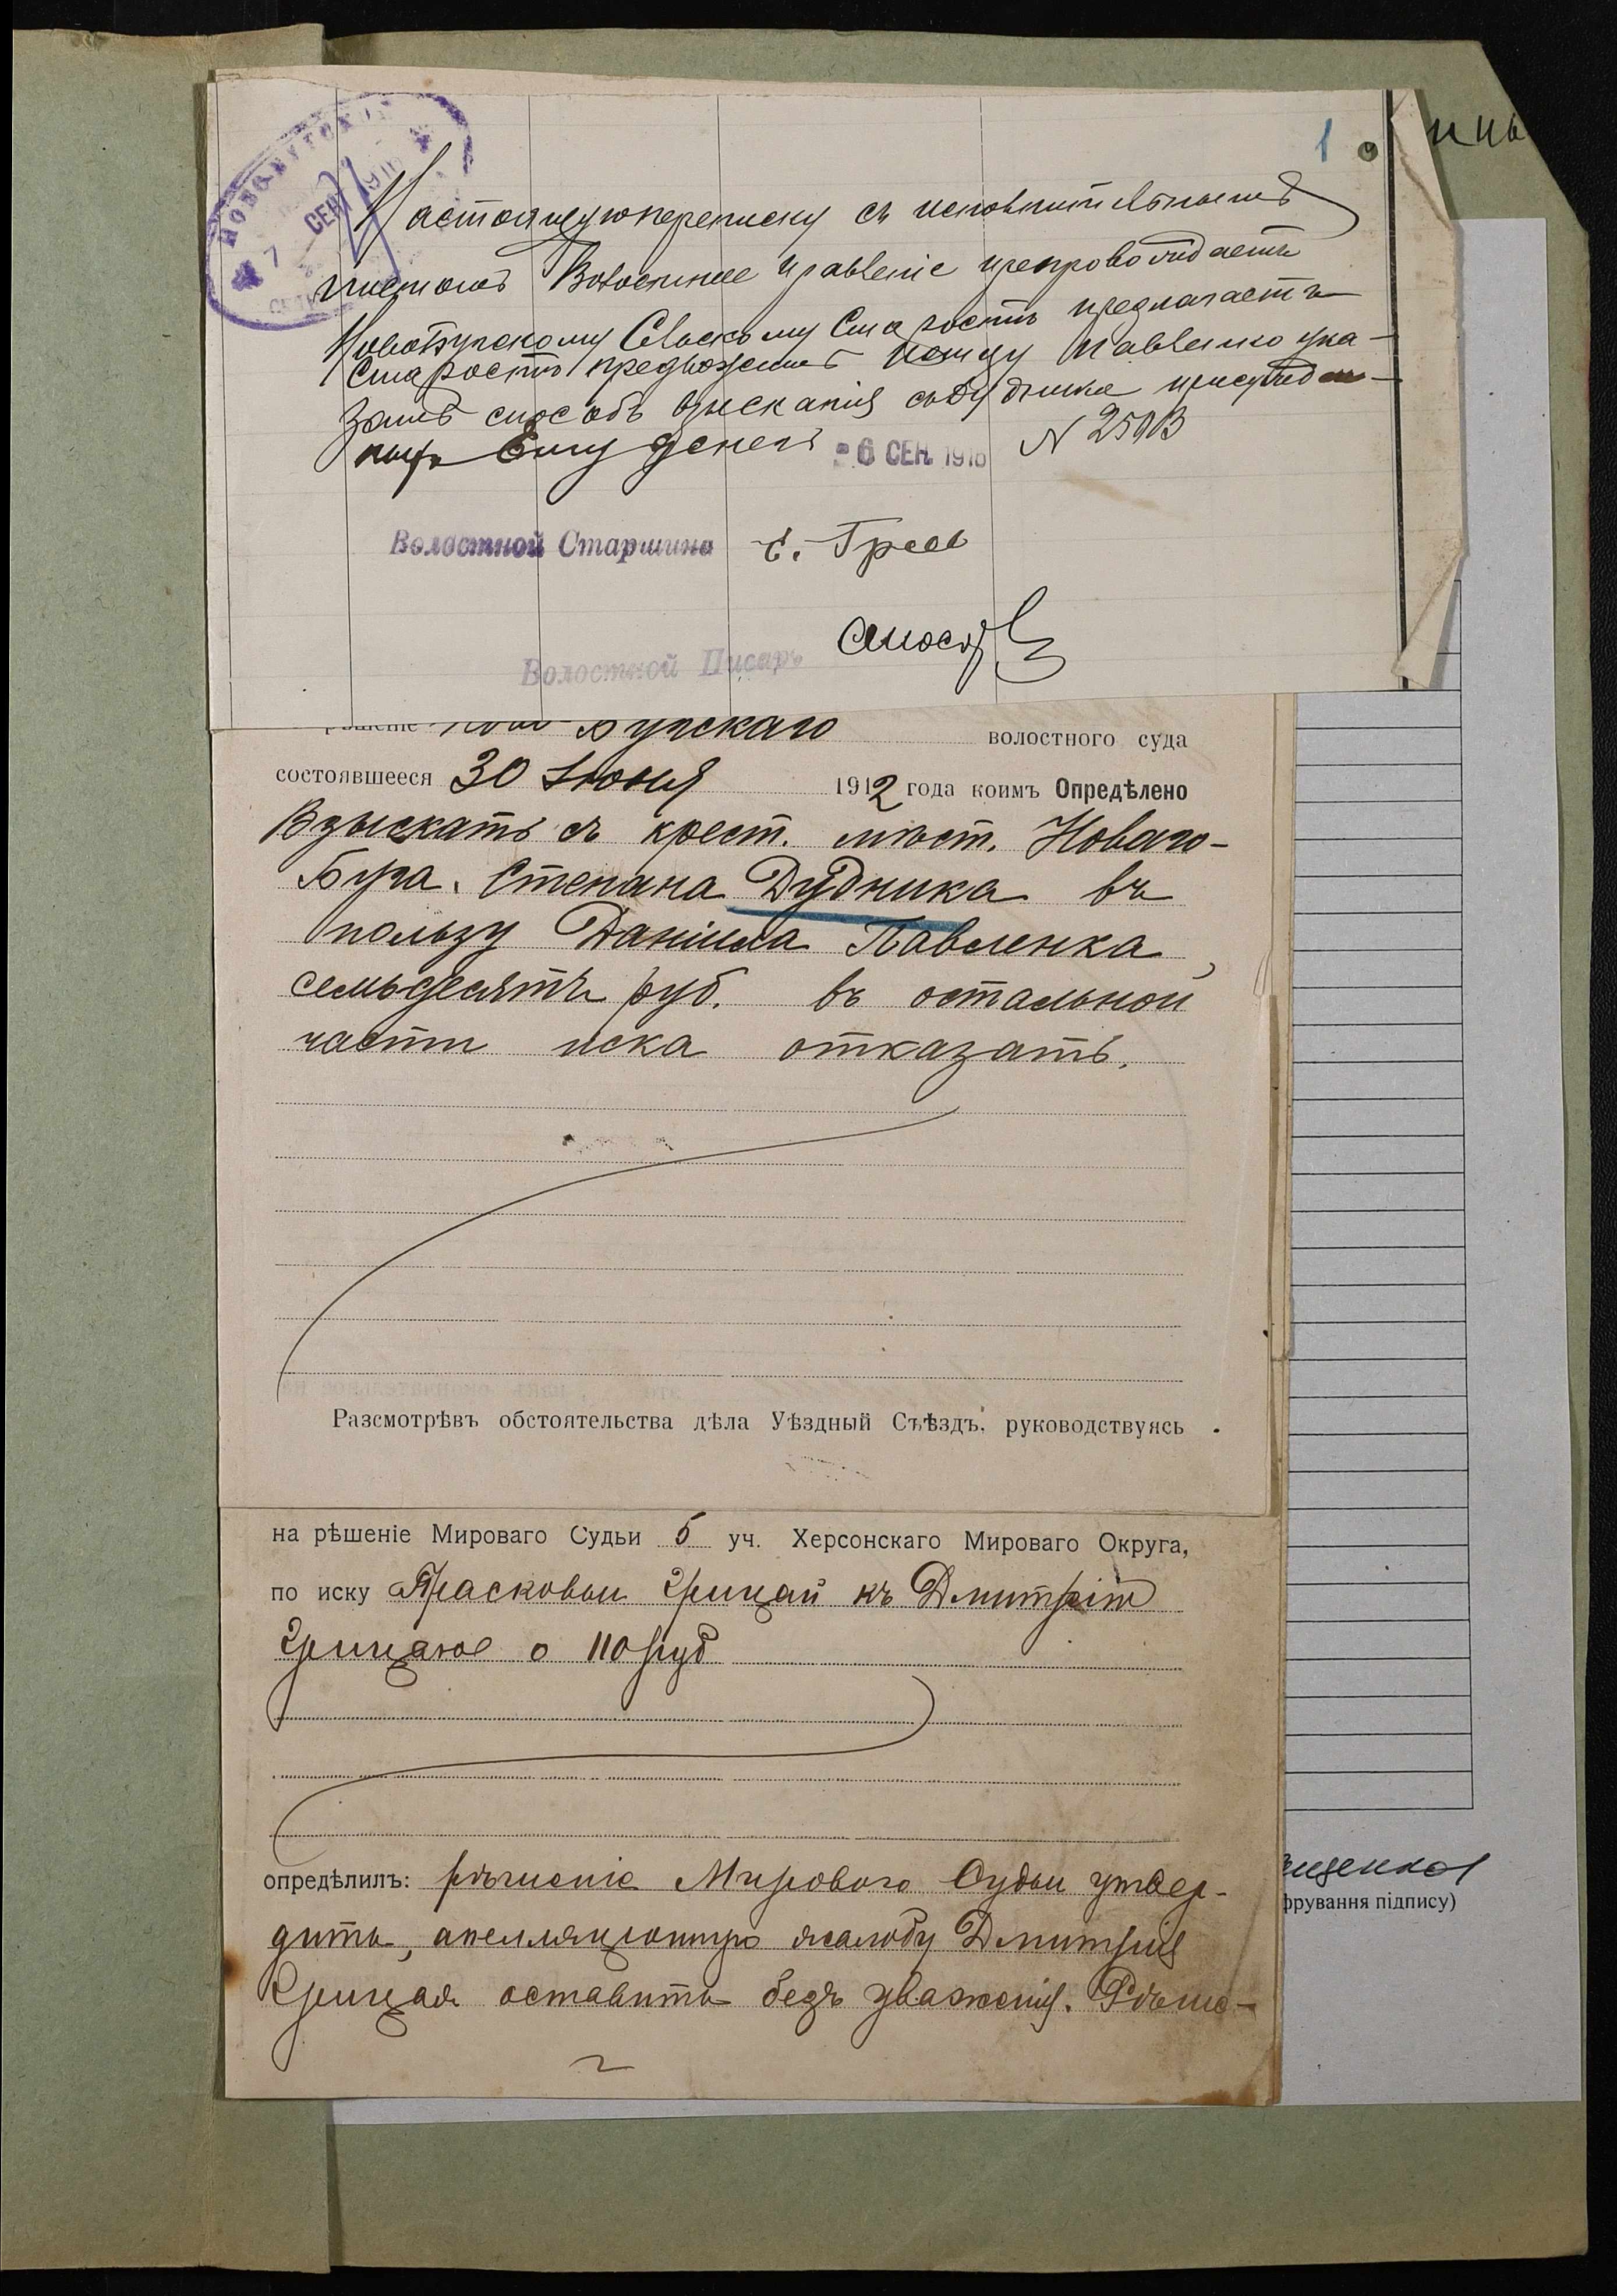 НОВО-БУГСКОЕ
7 СЕН 191
1
инь
Настоящую переписку съ исполнительнымъ
листомъ Волостное Правленіе препровождаетъ
НовоБугскому Сельскому Старостѣ предлагаетъ
Старостѣ предложить истцу Павленко ука-
зать способъ взысканія съ Дудника присужден-
ныхъ Ему денегъ 6 СЕН 191 N 2503
Волостной Старшина
Волостной Писарь
рѣшеніе Ново-Бугскаго волостного суда
состоявшееся 30 Іюня 1912 года коимъ Опредѣлено
Взыскать съ крест. мѣст. Новаго-
Буга. Степана Дудника въ
пользу Даніила Павленка,
семьдесятъ руб. въ остальной
части иска отказать.
Разсмотрѣвъ обстоятельства дѣла Уѣздный Съѣздъ, руководствуясь
на рѣшеніе Мироваго Судьи 5 уч. Херсонскаго Мироваго Округа,
по иску Прасковьи Грицай къ Дмитрію
Грицаю о 110 руб
опредѣлилъ: рѣшеніе Мирового Судьи утвер-
дить, апелляціонную жалобу Дмитрія
Грицая оставить безъ уваженія. Рѣше-
енко
фрування підпису)